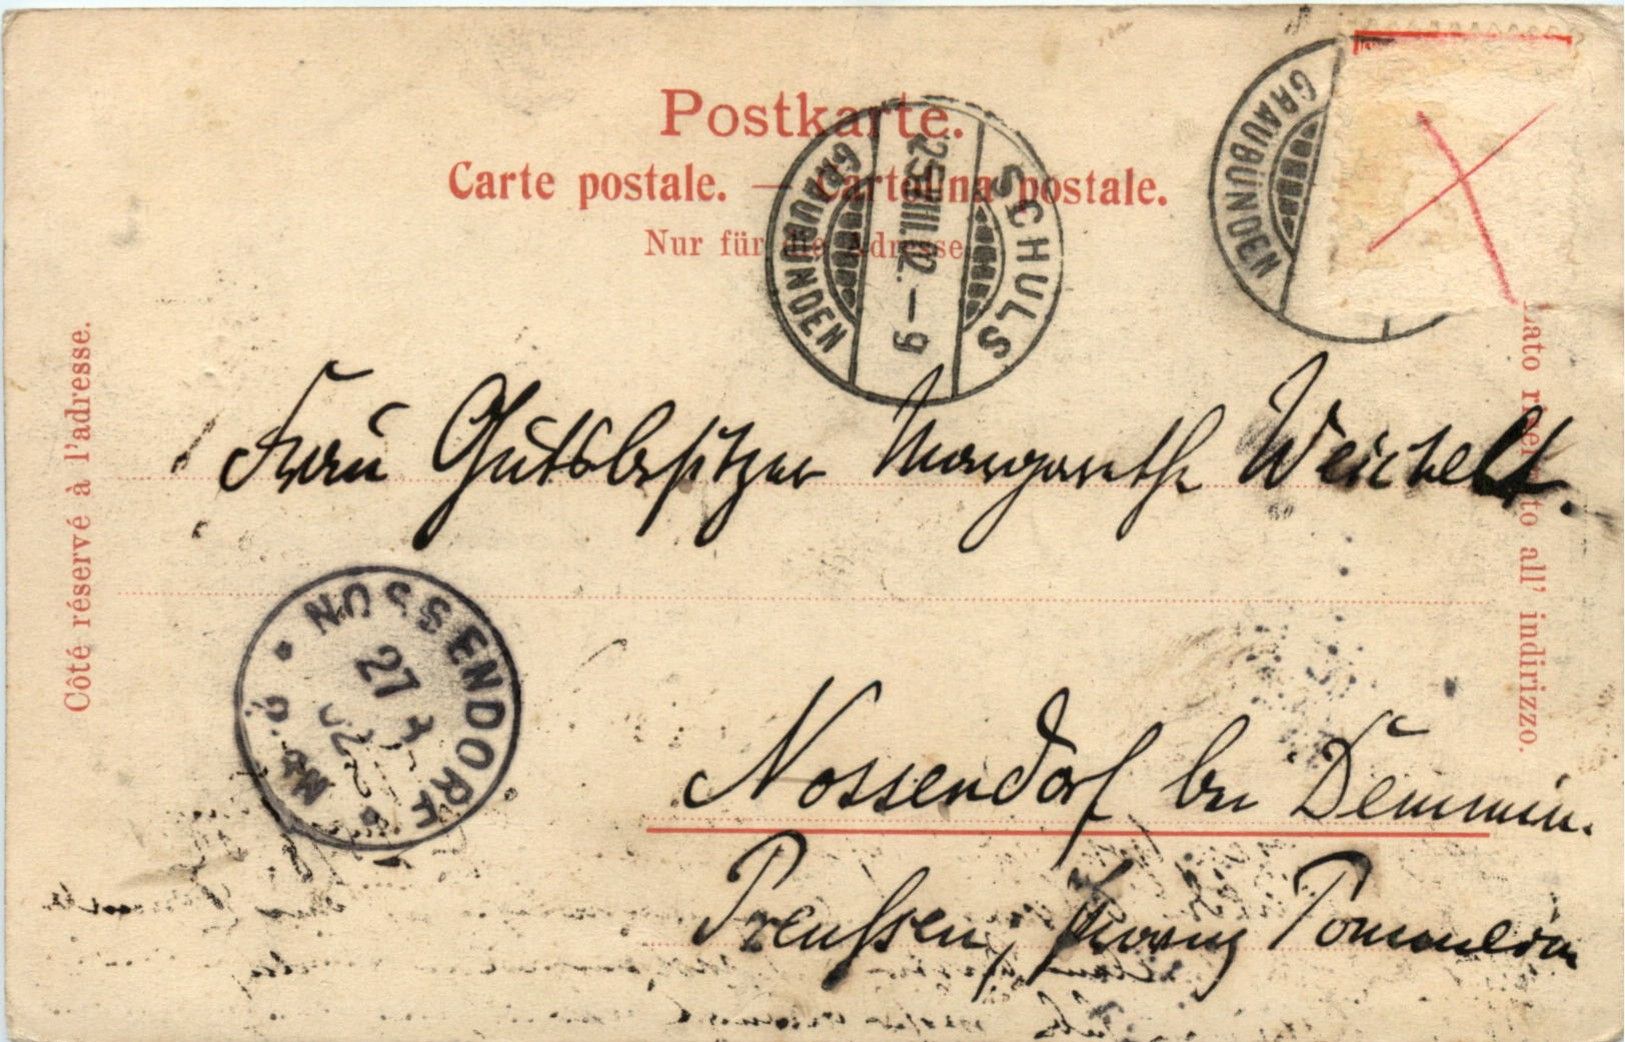 Postkarte.
Carte postale. — Cartolina postale.
Nur für die Adresse
SCHULS
25.VIII.02.–9
GRAUBÜNDEN
GRAUBÜNDEN
Côté réservé à l'adresse.
Lato riservato all' indirizzo.
Frau Gutsbesitzer Margarethe Weichelt.
NOSSENDORF
27
Nossendorf bei Demmin.
Preußen, Provinz Pommern